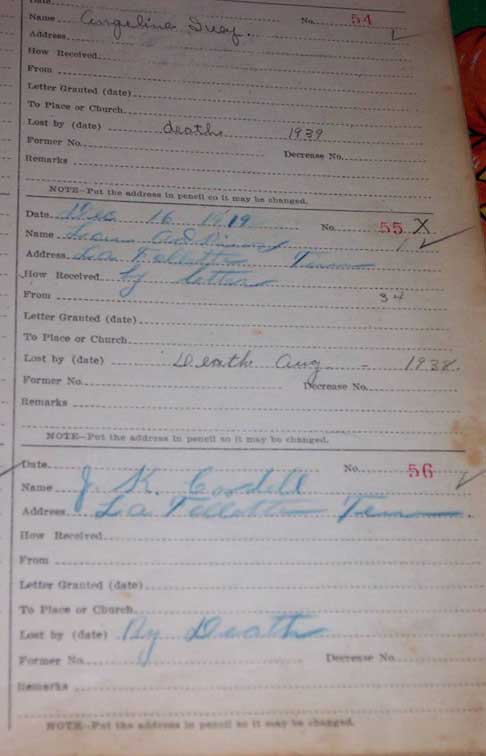 Date
Name Angelina No. 54
Address
How Received
From
Letter Granted (date)
To Place or Church
Lost by (date) death 1939
Former No. Decrease No.
Remarks
NOTE—Put the address in pencil so it may be changed.
Date Dec 16 1919 No. 55 X
Name
Address La Follette Tenn
How Received by letter
From 34
Letter Granted (date)
To Place or Church
Lost by (date) Death Aug - 1938.
Former No. Decrease No.
Remarks
NOTE—Put the address in pencil so it may be changed.
Date No. 56
Name J. K. Cordell
Address La Follette Tenn.
How Received
From
Letter Granted (date)
To Place or Church
Lost by (date) By Death
Former No. Decrease No.
Remarks
NOTE—Put the address in pencil so it may be changed.